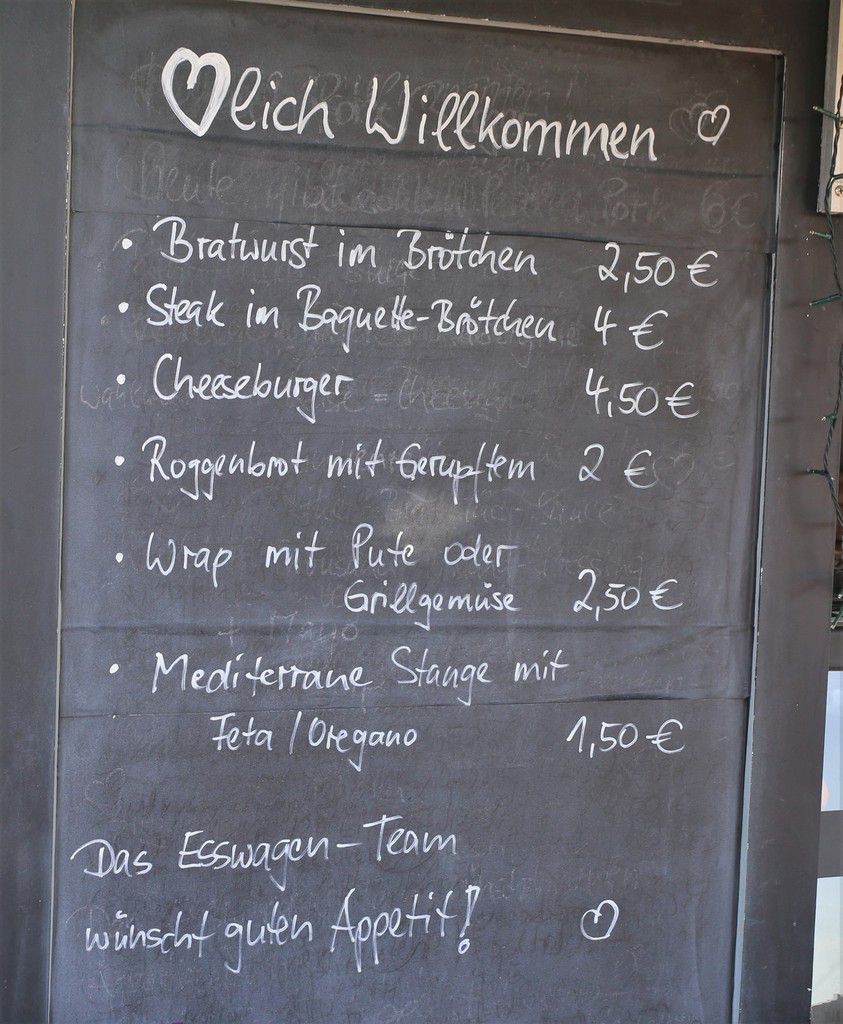 ♡lich Willkommen ♡
• Bratwurst im Brötchen 2,50 €
• Steak im Baguette-Brötchen 4 €
• Cheeseburger 4,50 €
• Roggenbrot mit Gerupftem 2 €
• Wrap mit Pute oder
Grillgemüse 2,50 €
• Mediterrane Stange mit
Feta / Oregano 1,50 €
Das Esswagen-Team
wünscht guten Appetit! ♡